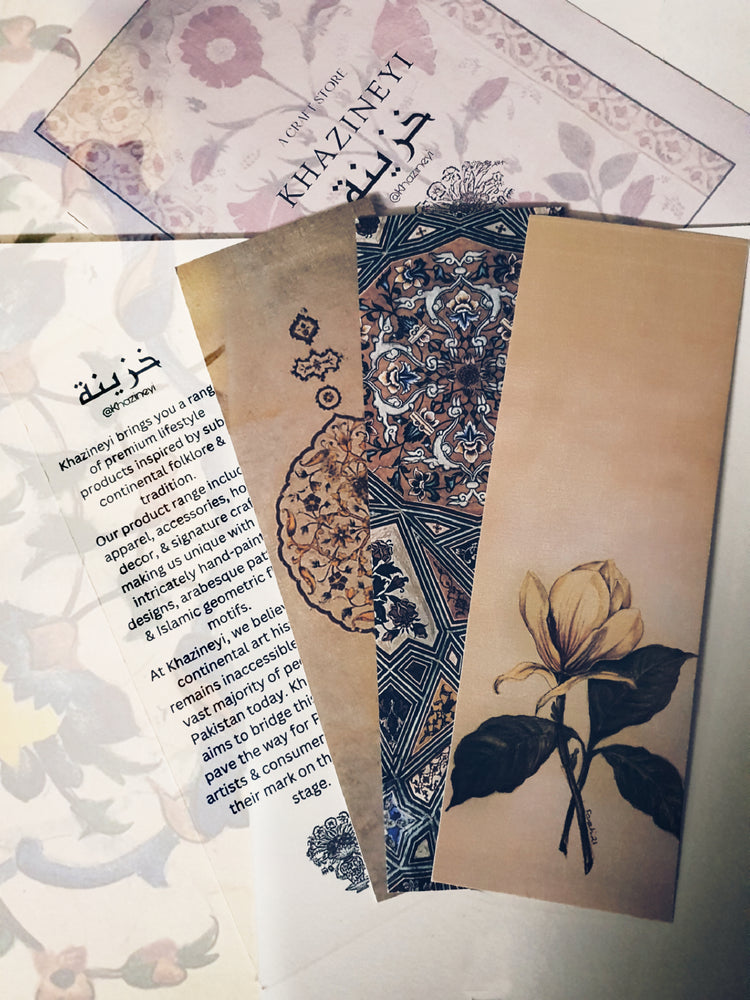 A CRAFT STORE
KHAZINEYI
خزينة
@Khazineyi
خزينة
@Khazineyi
Khazineyi brings you a
of premium lifestyle
products inspired by sub
continental folklore &
tradition.
Our product range
apparel, accessories,
decor, & signature
making us unique with
intricately
designs, arabesque
& Islamic geometric
motifs.
At Khazineyi, we
continental art
remains inaccessible
vast majority of
Pakistan today.
aims to bridge
pave the way for
artists &
their mark on
stage.